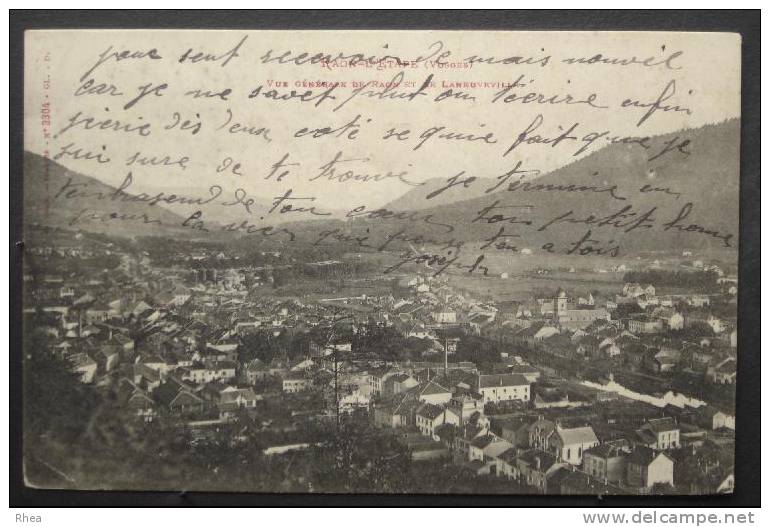 RAON-L'ETAPE (Vosges)
VUE GÉNÉRALE DE RAON ET DE LANEUVEVILLE
peuc sent recevoir de mais nouvil
car je ne savet plut ou técrire enfin
jécrie dès deux coté se quie fait que je
sui sure de te trouvé je termine en
tenbrasend de ton cœur ton petit home
pour la vien qui panse ten a tois
Joseph
N° 3304
Rhea
www.delcampe.net